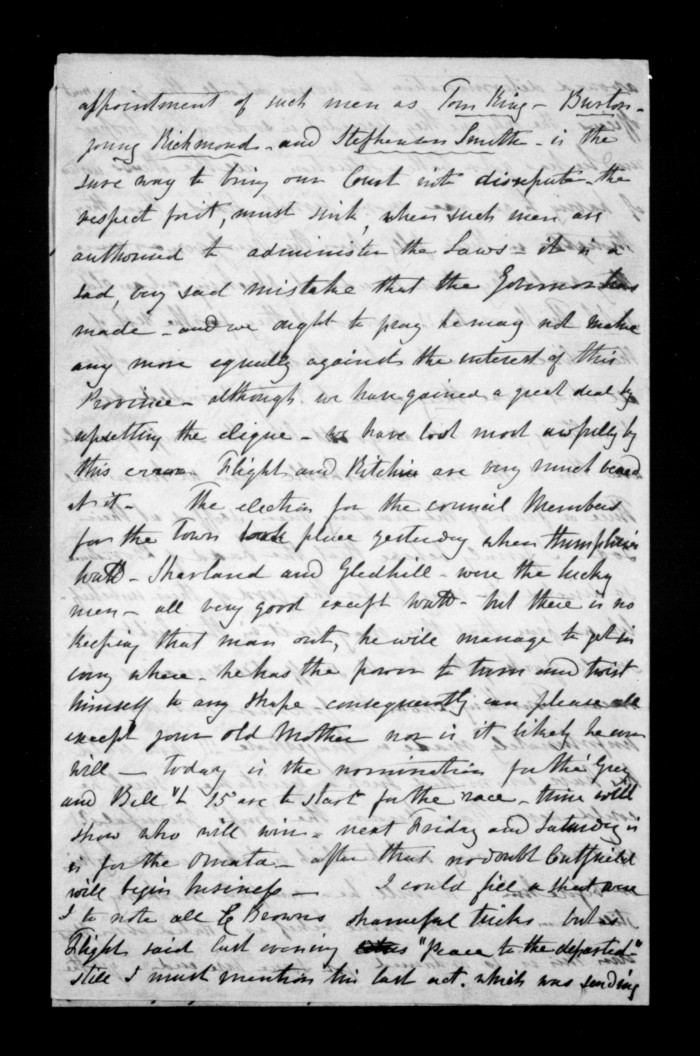 appointment of such men as Tom King - Burton -
young Richmond - and Stephenson Smith - is the
sure way to bring our Court into disrepute - the
respect for it, must sink, when such men are
authorised to administer the Laws - it is a
sad, very sad mistake that the Governor has
made - and we ought to pray he may not make
any more equally against the interest of this
Province - although we have gained a great deal by
upsetting the clique - we have lost most awfully by
this error. Flight and Ritchie are very much
at it - The election for the council Members
for the town took place yesterday when Humphries
Watt - Sharland and Gledhill - were the lucky
men - all very good except Watt - but there is no
keeping that man out, he will manage to get in
any where - he has the power to turn and twist
himself to any shape - consequently can please all
except your old Mother nor is it likely he ever
will - today is the nomination for the Grey
and Bell "h 15 are to start for the race - time will
show who will win - next Friday and Saturday is
is for the Omata - after that no doubt Cutfield
will begin business - I could fill a sheet were
I to note all C Browns shameful tricks - but as
Flight said last evening "Peace to the departed"
still I must mention his last act. which was sending